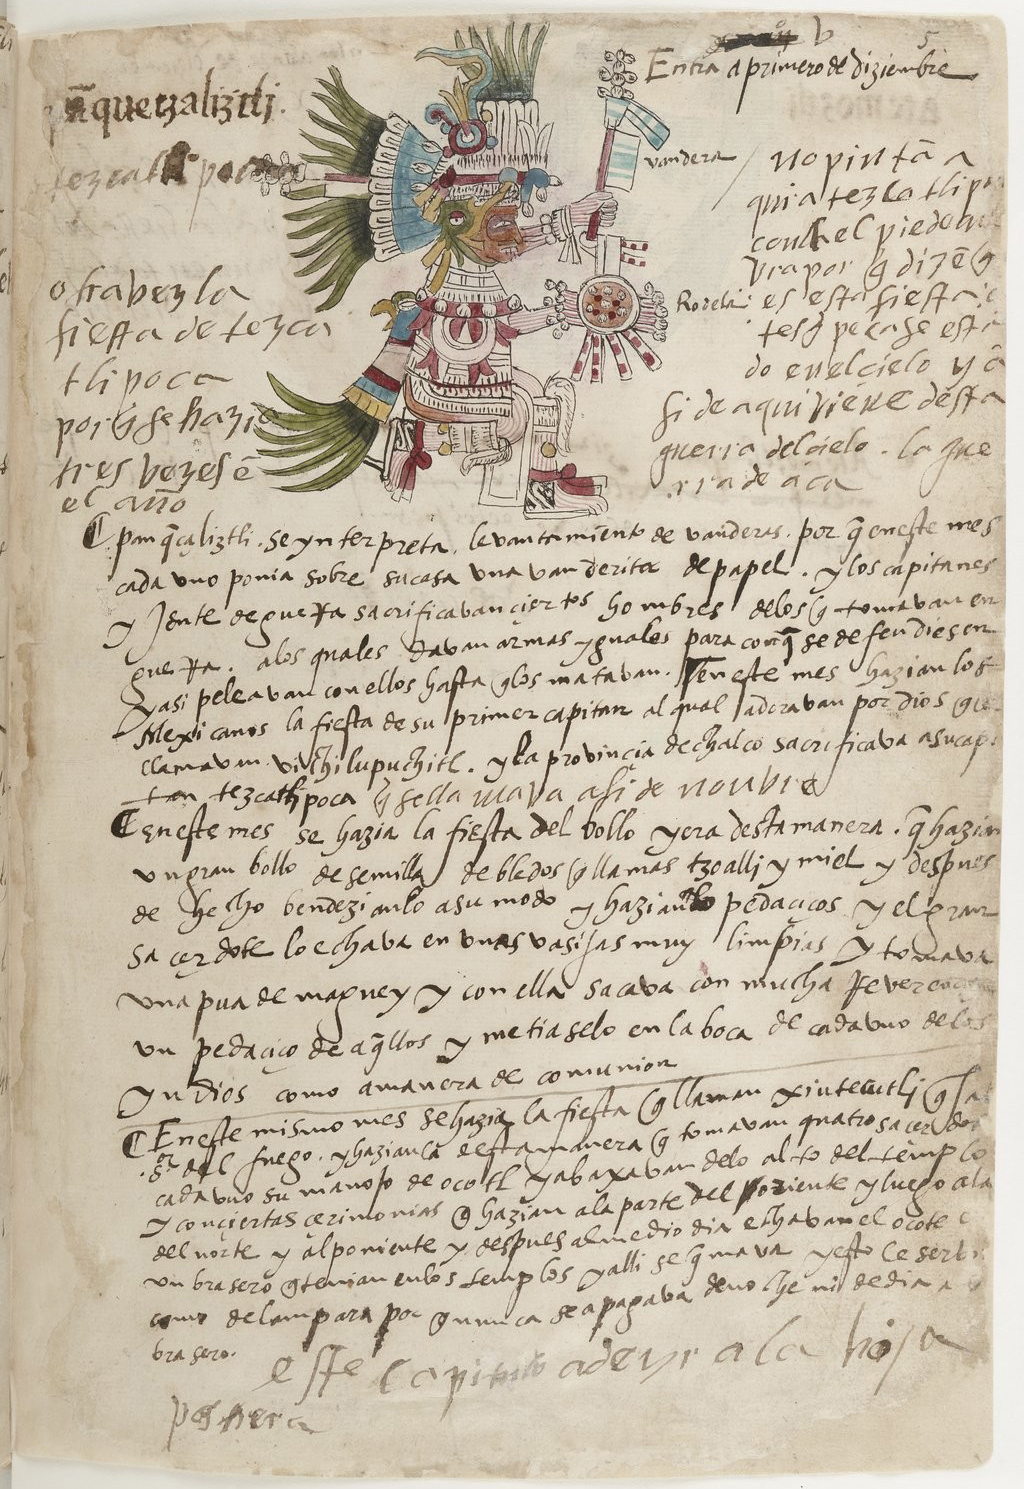 V 5
Entra a primero de diziembre
pāquetzaliztli.
tezcatlipoca
vandera
no pintā a
qui a tezcatlip
con el pie de
por q̄ dizē q̄
Rodela
es esta fiesta
pecase esta
do en el cielo y a
si de aqui viene desta
guerra del cielo . la gue
rra de aca
otra vez la
fiesta de tezca
tlipoca
por q̄ se hazia
tres vezes ē
el año
panq̄çaliztli . se ynterpreta . levantamiento de vanderas . por q̄ en este mes
cada uno ponia sobre su casa una vanderita de papel . y los capitanes
y jente de guerra sacrificavan ciertos hombres delos q̄ tomavan en
guerra . a los quales davan armas yguales para conq̄ se defendiesen
y asi peleavan con ellos hasta q̄ los matavan . Y en este mes hazian los
Mexicanos la fiesta de su primer capitan al qual adoravan por dios q̄
llamavan vitzhilupuchitl . y la provinçia de chalco sacrificava a su capi
tan tezcatlipoca q̄ se llamava asi de nonbre
en este mes se hazia la fiesta del bollo y era desta manera . q̄ hazian
un gran bollo de semilla de bledos q̄ llamas tzoalli y miel y despues
de hecho bendezianlo a su modo y hazianlo pedaçicos y el gran
saçerdote lo echava en unas vasijas muy limpias y tomava
una pua de maguey y con ella sacava con mucha Reverençia
un pedaçico de aq̄llos y metiaselo en la boca de cada uno de los
yndios como a manera de comunion
En este mismo mes se hazia la fiesta q̄ llaman xiutecutli q̄
del fuego . y hazianla desta manera q̄ tomavan quatro saçerdotes
cada uno su manojo de ocotl y abaxavan delo alto del templo
y con ciertas cerimonias q̄ hazian a la parte del oriente y luego a la
del norte y al poniente y despues al medio dia echavan el ocote
un brasero q̄ tenian en los templos y alli se q̄mava y esto
como de lampara por q̄ nunca se apagava de noche ni de dia
brasero.
este capitulo a de yr a la hoja
postrera